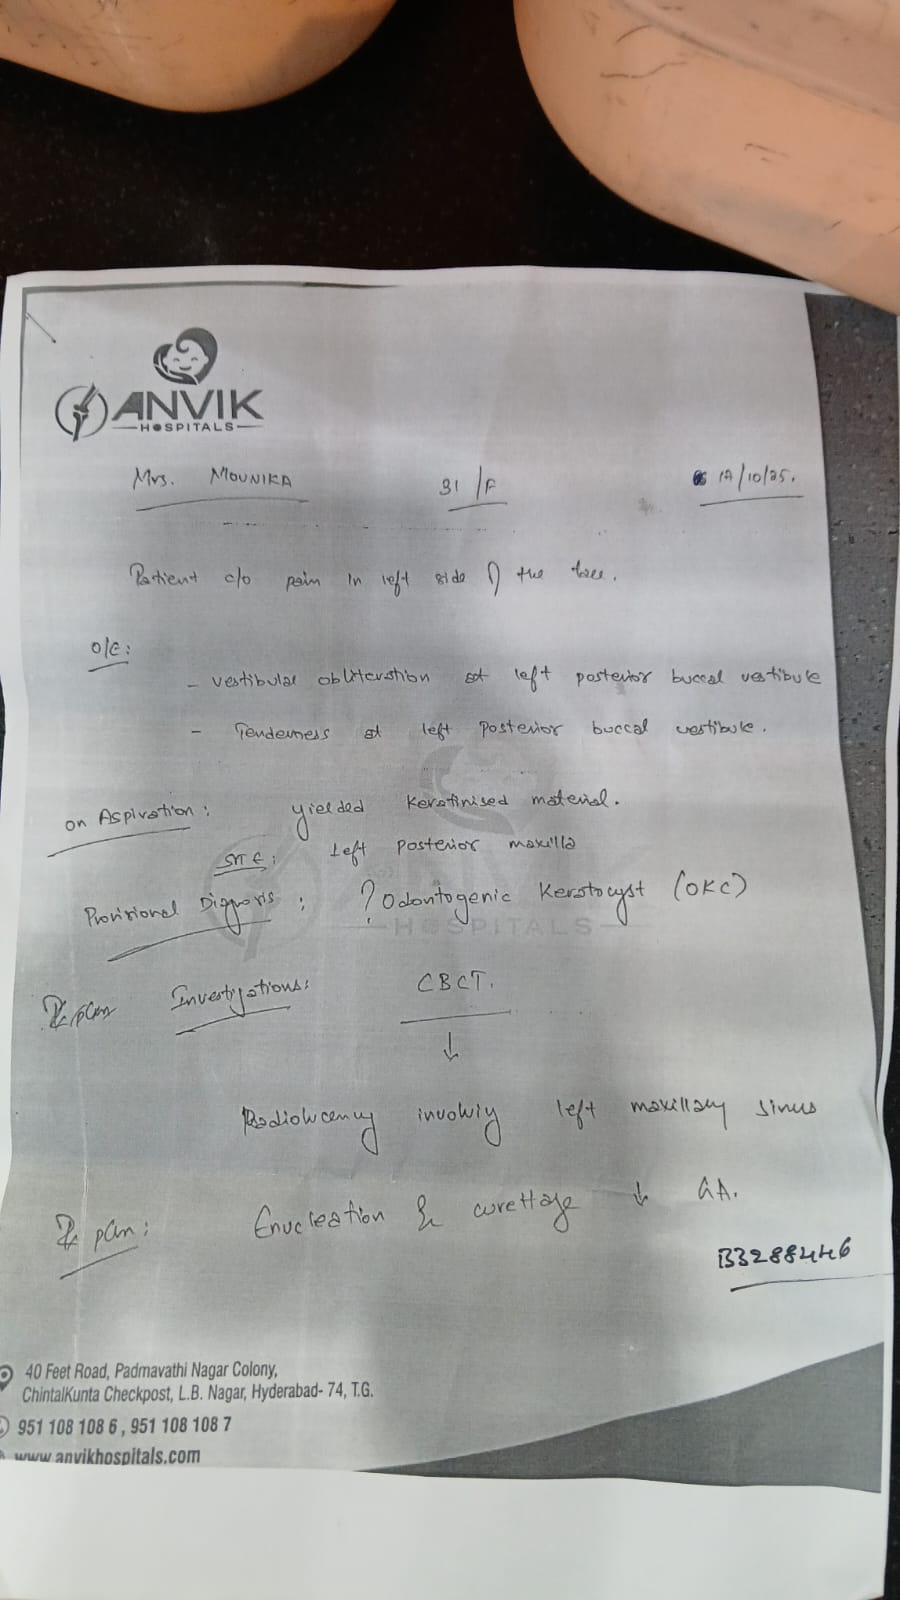 ANVIK
HOSPITALS
Mrs. MOUNIKA 31/F 17/10/25.
Patient c/o pain in left side of the face.
O/E:
- Vestibular obliteration at left posterior buccal vestibule
- Tenderness at left posterior buccal vestibule.
on Aspiration: yielded keratinised material.
SITE: Left posterior maxilla
Provisional Diagnosis: ? Odontogenic Keratocyst (OKC)
plan Investigations: CBCT.
↓
Radiolucency involvig left maxillary sinus
plan: Enucleation & curettage ↓ GA.
B3288446
40 Feet Road, Padmavathi Nagar Colony,
ChintalKunta Checkpost, L.B. Nagar, Hyderabad- 74, T.G.
951 108 108 6 , 951 108 108 7
www.anvikhospitals.com